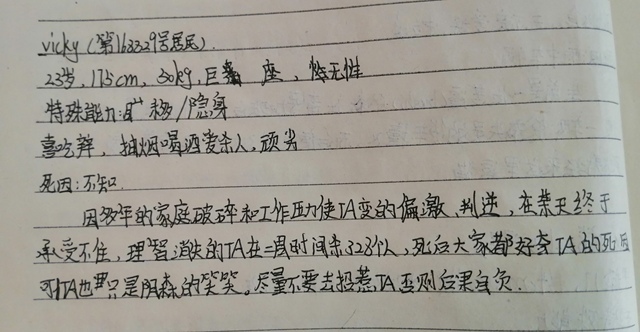 vicky(第163329号居民).
23岁,175cm,50kg,巨蟹座,性无性
特殊能力:移/隐身
喜吃辣,抽烟喝酒爱杀人,顽劣
死因:不知.
因多年的家庭破碎和工作压力使TA变的偏激、判逆,在某天终于
承受不住,理智消失的TA在二周时间杀323个人,死后大家都好奇TA的死因
可TA也只是阴森的笑笑。尽量不要去招惹TA否则后果自负.